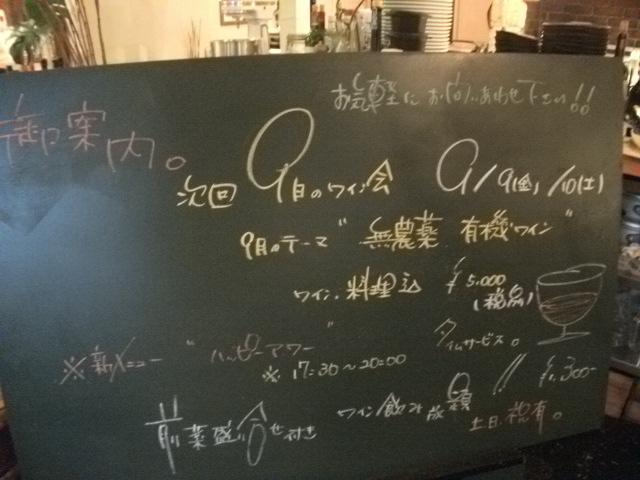 お気軽にお問いあわせ下さい!!
御案内。
次回 9月のワイン会 9/9(金)/10(土)
9月のテーマ "無農薬 有機ワイン"
ワイン.料理込 ¥5,000
(税別)
※新メニュー "ハッピーアワー" タイムサービス。
※17:30〜20:00
前菜盛合せ付き ワイン飲み放題!! ¥1,300-
土日.祝有。